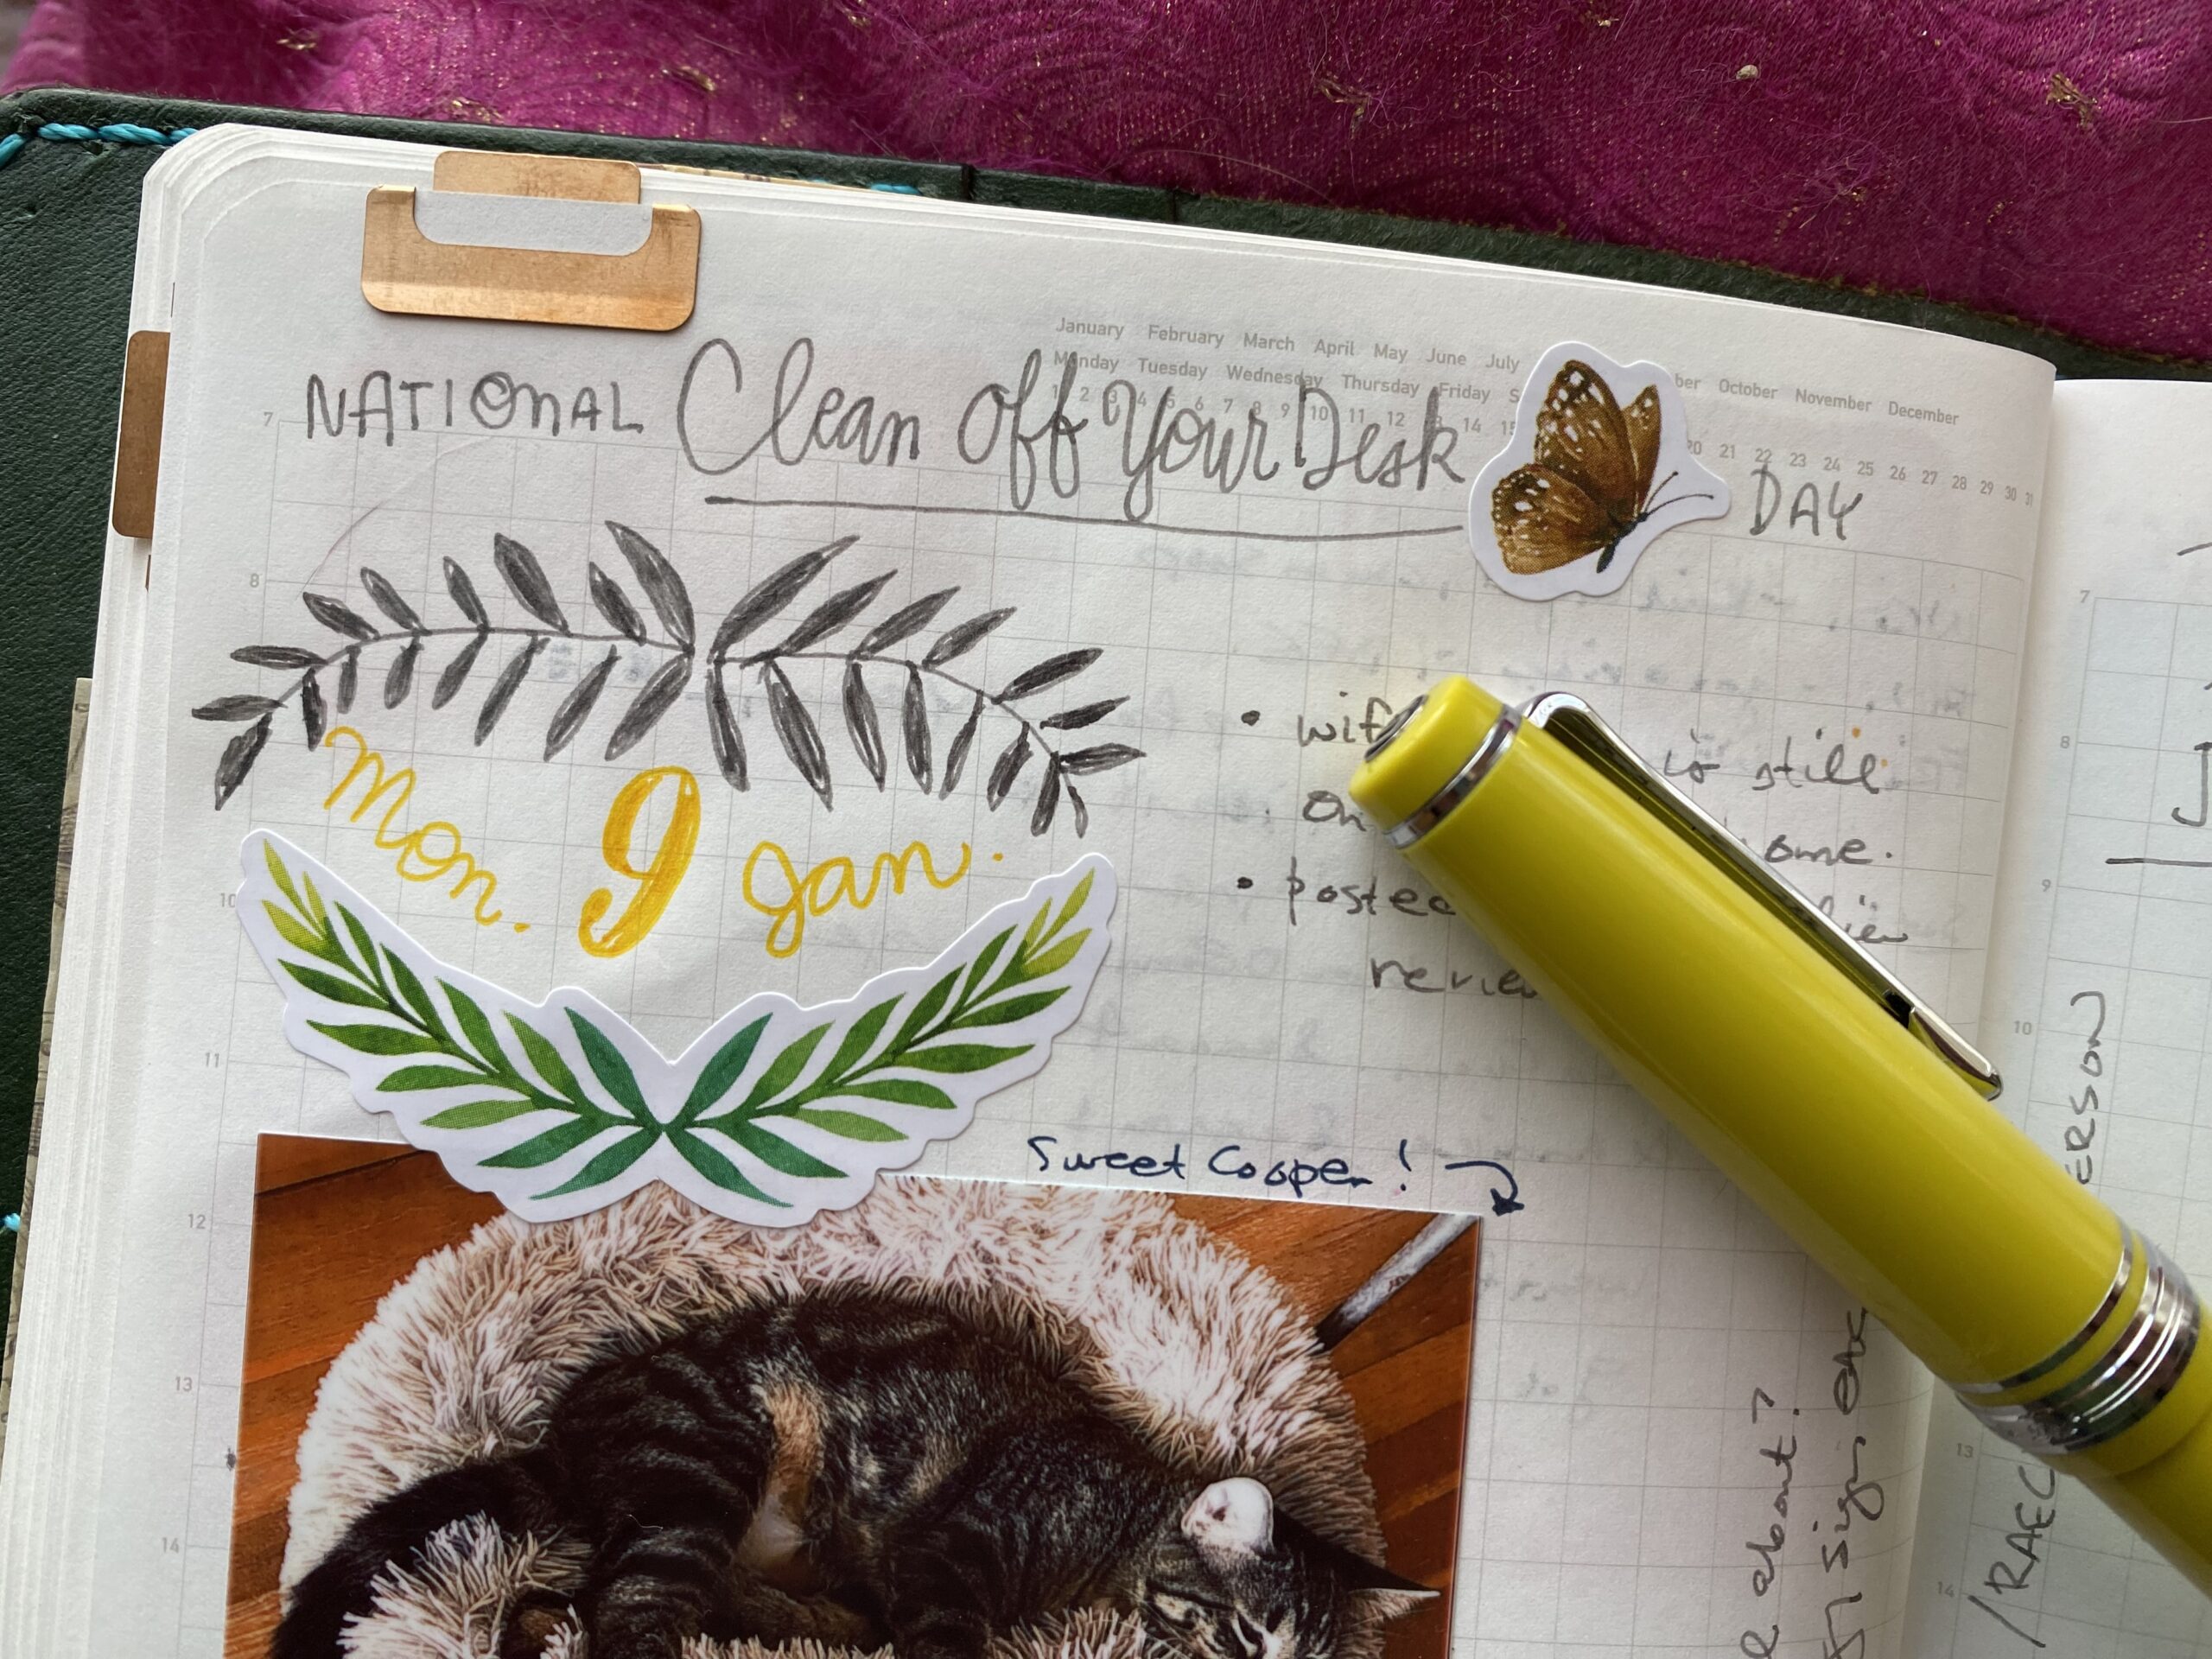 January February March April May June July ber October November December
Monday Tuesday Wednesday Thursday Friday S
1 2 3 4 5 6 7 8 9 10 11 12 13 14 15 20 21 22 23 24 25 26 27 28 29 30 31
NATIONAL Clean Off Your Desk DAY
7
8
10
11
12
13
14
Mon. 9 Jan.
• wif is still
on ome.
• posted
review
Sweet Cooper!
about?
sign
7
8
9
10
13
14
ERSON
/RAEC